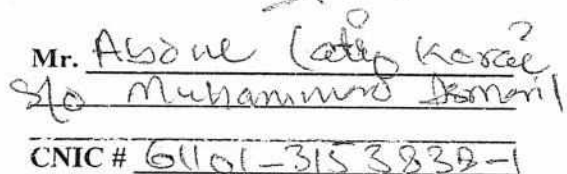 Mr. Abdul Latif Korai
S/o Muhammad Ismail
CNIC # 61101-3153838-1